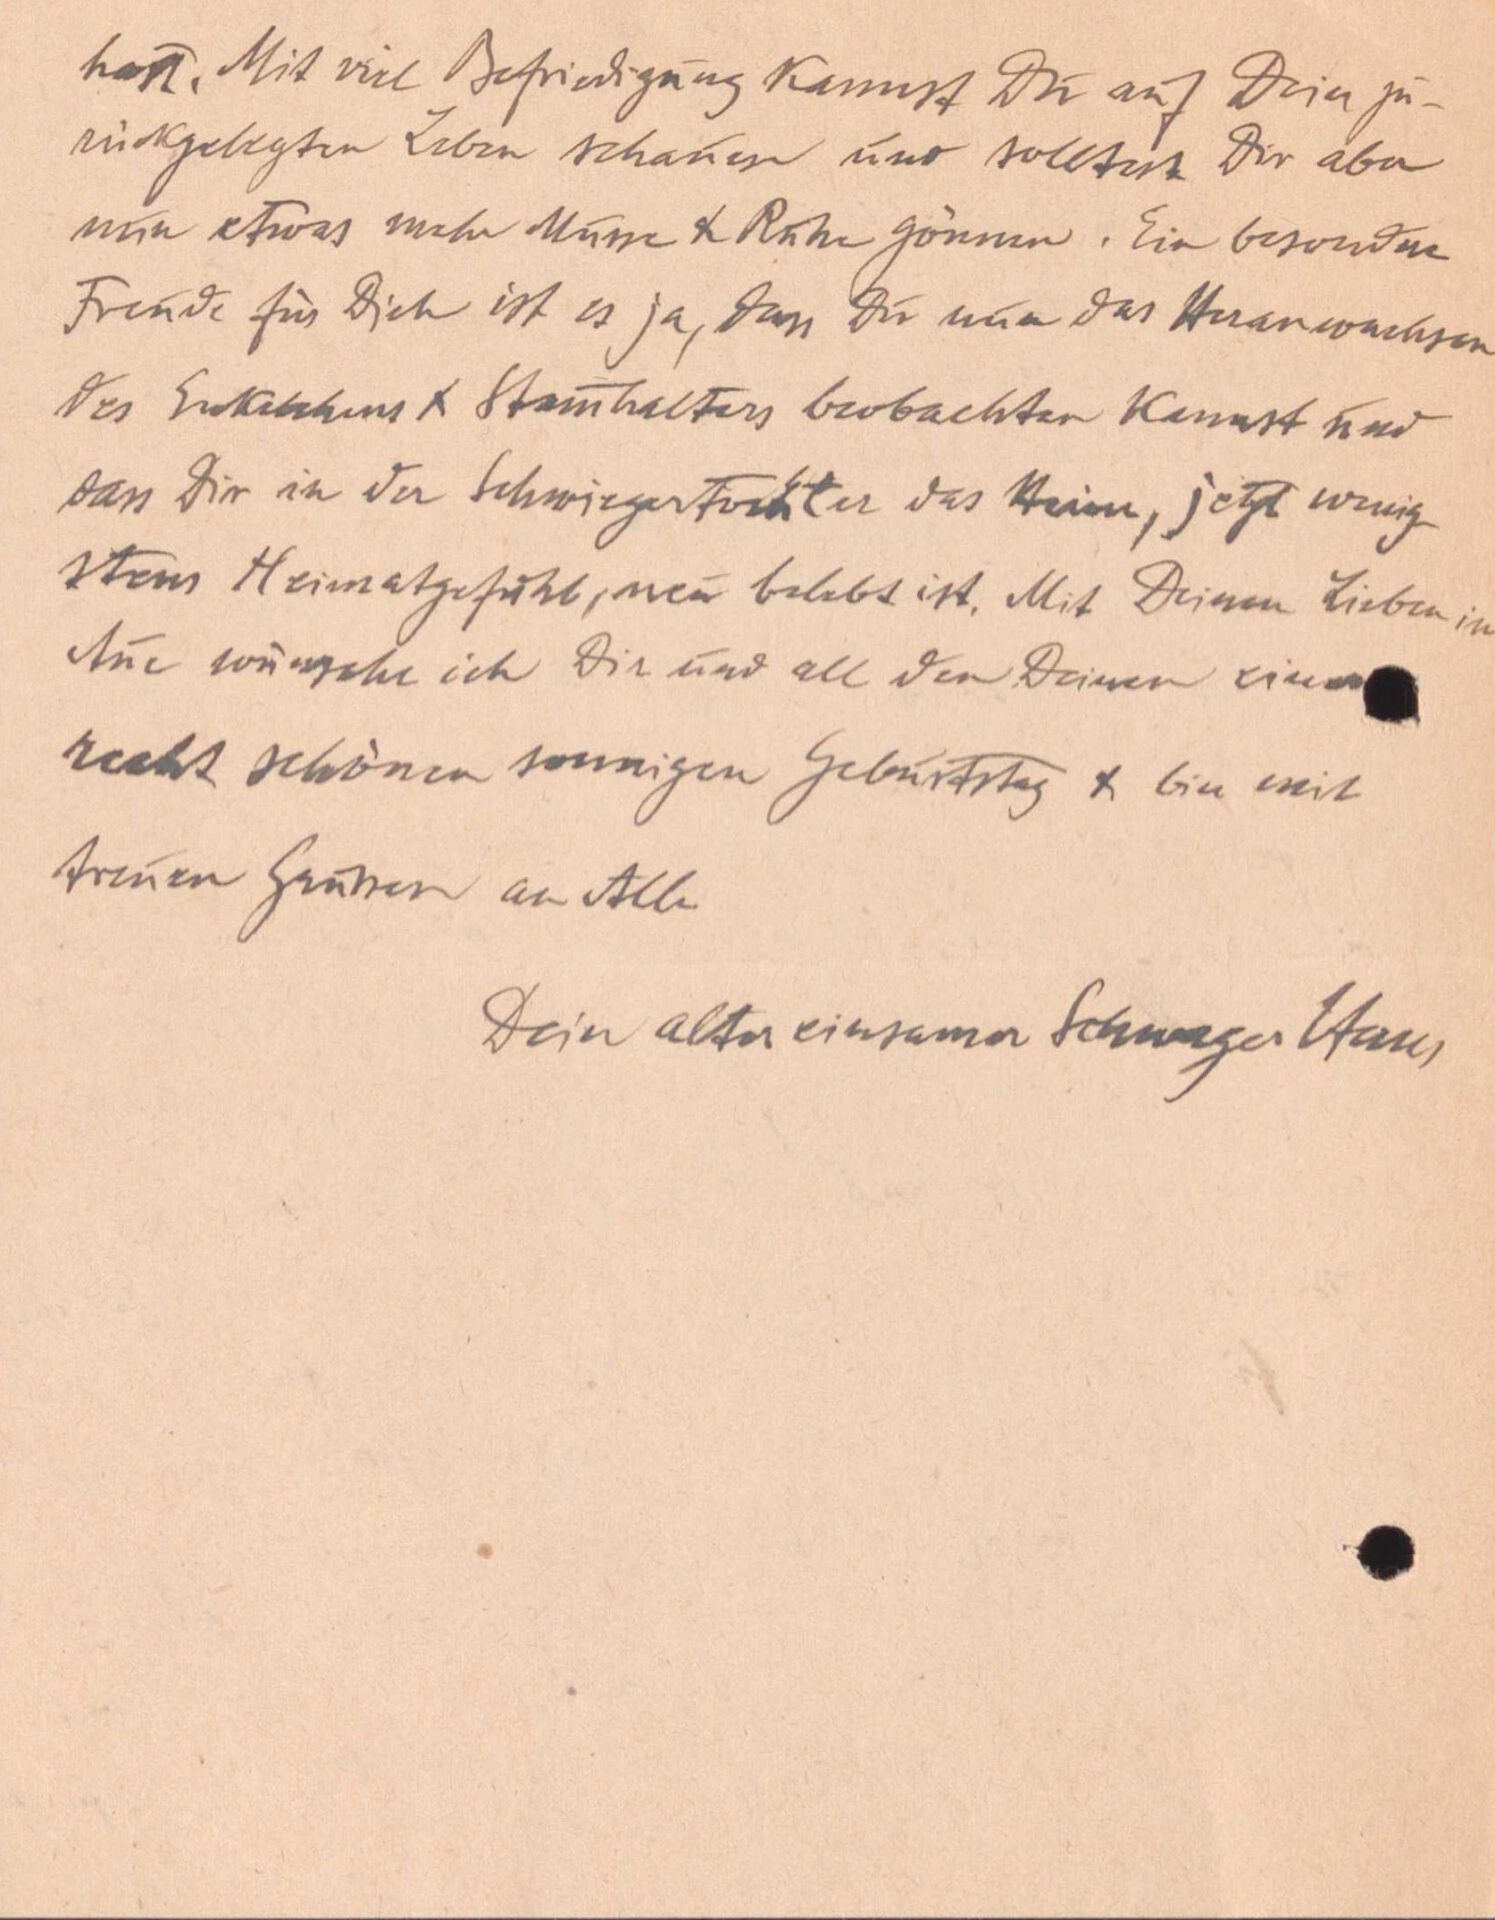 hast. Mit viel Befriedigung kannst Du auf Dein zu-
rückgelegten Leben schauen und solltest Dir aber
nun etwas mehr Musse & Ruhe gönnen. Ein besondere
Freude für Dich ist es ja, dass Du nun das Heranwachsen
des Enkelchens & Stam̄halters beobachten kannst und
dass Dir in der Schwiegertochter das Heim, jetzt wenig
stens Heimatgefühl, neu belebt ist. Mit Deinen Lieben in
Aue wünsche ich Dir und all den Deinen einen
recht schönen sonnigen Geburtstag & bin mit
treuen Grüssen an Alle
Dein alter einsamer Schwager Hans